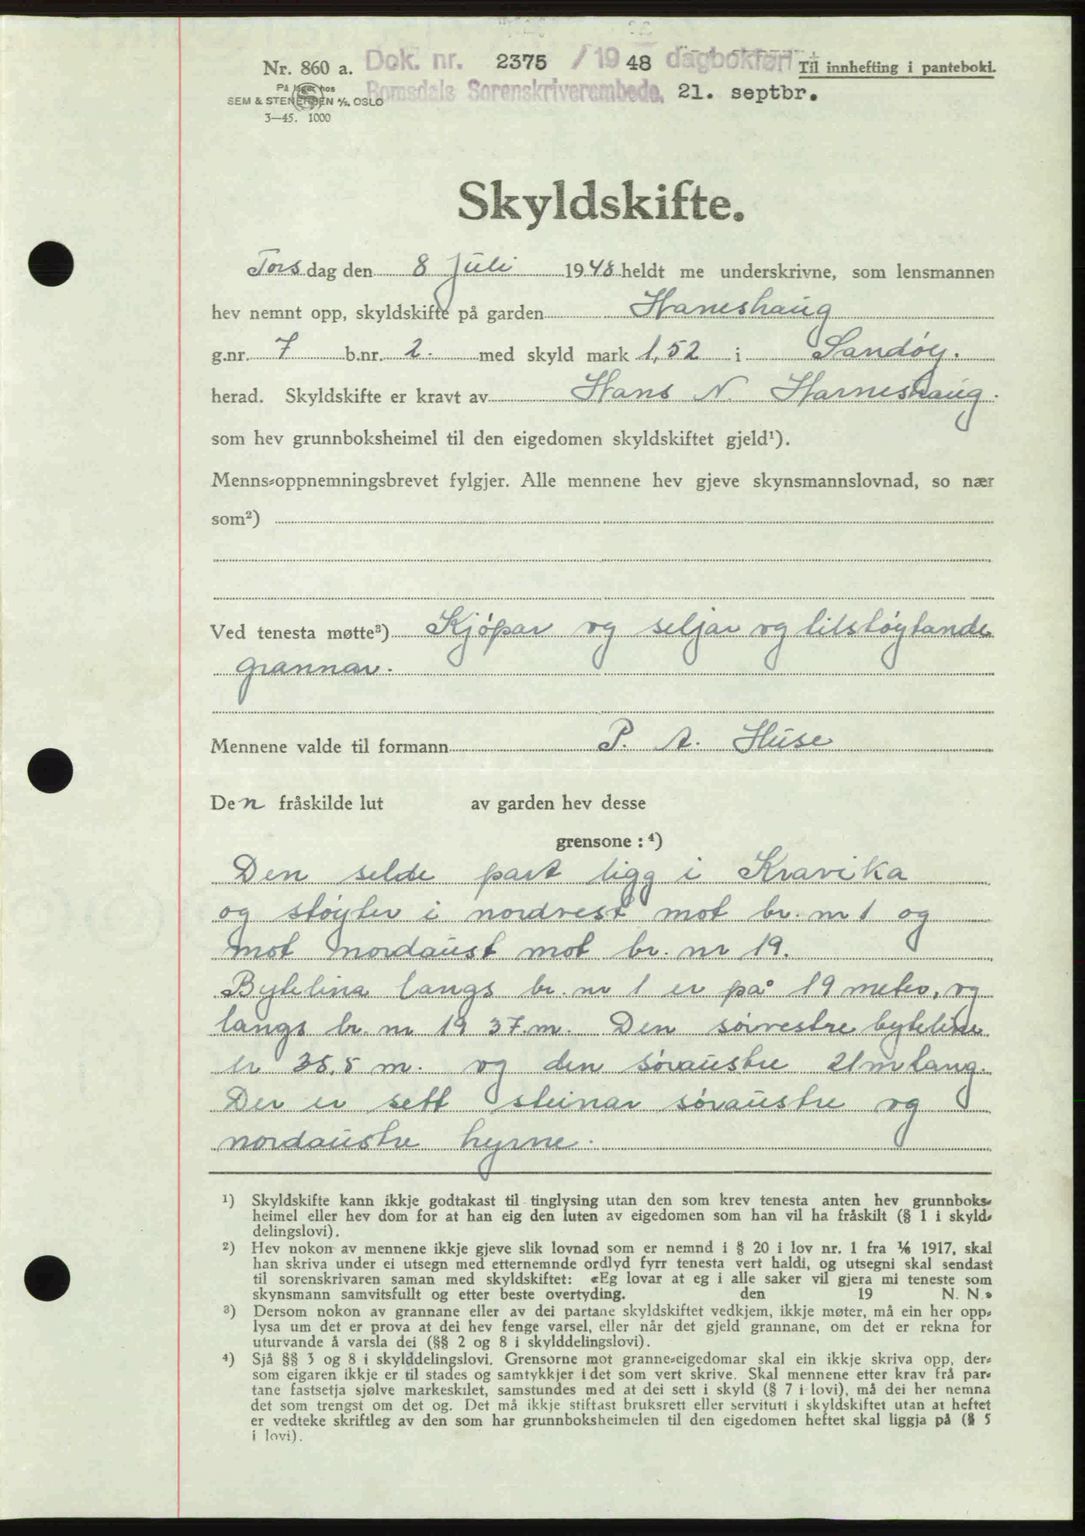 Nr. 860 a. Dok. nr. 2375 / 1948 dagbokført Til innhefting i panteboki.
På lager hos Romsdals Sorenskriverembede, 21. septbr.
SEM & STENERSEN A/S, OSLO
3—45. 1000
Skyldskifte.
Torsdag den 8 Juli 1948 heldt me underskrivne, som lensmannen
hev nemnt opp, skyldskifte på garden Harneshaug
g.nr. 7 b.nr. 2. med skyld mark 1,52 i Sandøy.
herad. Skyldskifte er kravt av Hans N. Harneshaug.
som hev grunnboksheimel til den eigedomen skyldskiftet gjeld¹).
Menns-oppnemningsbrevet fylgjer. Alle mennene hev gjeve skynsmannslovnad, so nær
som²)
Ved tenesta møtte³) Kjøpar og seljar og tilstøytande
grannar.
Mennene valde til formann P. A. Huse
Den fråskilde lut av garden hev desse
grensone : ⁴)
Den selde part ligg i Kravika
og støyter i nordvest mot br. nr 1 og
mot nordaust mot br. nr 19.
Bytelina langs br. nr 1 er på 19 meter, og
langs br. nr 19 37 m. Den sørvestre bytelina
er 35,5 m. og den søraustre 21 m lang.
Der er sett steinar søraustre og
nordaustre hyrne.
¹) Skyldskifte kann ikkje godtakast til tinglysing utan den som krev tenesta anten hev grunnboks-
heimel eller hev dom for at han eig den luten av eigedomen som han vil ha fråskilt (§ 1 i skyld-
delingslovi).
²) Hev nokon av mennene ikkje gjeve slik lovnad som er nemnd i § 20 i lov nr. 1 fra 1/6 1917, skal
han skriva under ei utsegn med etternemnde ordlyd fyrr tenesta vert haldi, og utsegni skal sendast
til sorenskrivaren saman med skyldskiftet: «Eg lovar at eg i alle saker vil gjera mi teneste som
skynsmann samvitsfullt og etter beste overtyding. den 19 N. N.»
³) Dersom nokon av grannane eller av dei partane skyldskiftet vedkjem, ikkje møter, må ein her opp-
lysa um det er prova at dei hev fenge varsel, eller når det gjeld grannane, om det er rekna for
uturvande å varsla dei (§§ 2 og 8 i skylddelingslovi).
⁴) Sjå §§ 3 og 8 i skylddelingslovi. Grensorne mot granne-eigedomar skal ein ikkje skriva opp, der-
som eigaren ikkje er til stades og samtykkjer i det som vert skrive. Skal mennene etter krav frå par-
tane fastsetja sjølve markeskilet, samstundes med at dei sett i skyld (§ 7 i lovi), må dei her nemna
det som trengst om det og. Det må ikkje stiftast bruksrett eller servitutt i skyldskiftet utan at heftet
er vedteke skriftleg av den som har grunnboksheimelen til den eigedomen heftet skal liggja på (§ 5
i lovi).